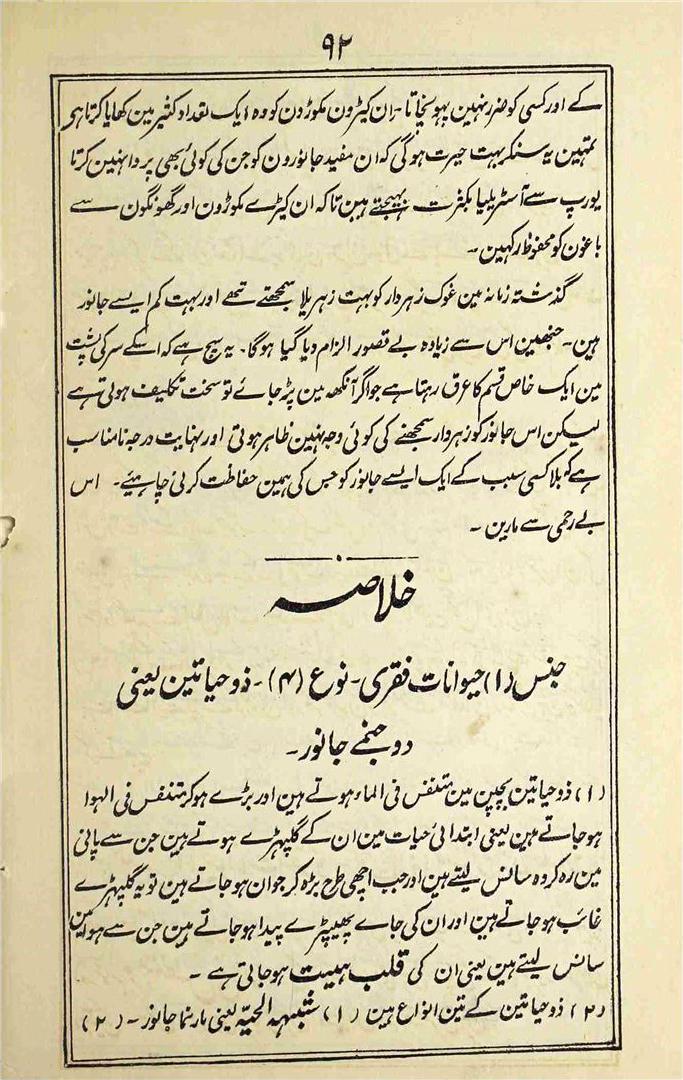 ۹۲
کے اور کسی کو ضرر نہین پہونچاتا۔ ان کیڑون مکوڑون کو وہ ایک تعداد کثیر مین کھایا کرتا ہی
تمہین یہ سنکر بہت حیرت ہوگی کہ ان مفید جانورون کو جن کی کوئی بھی پروا نہین کرتا
یورپ سے آسٹریلیا بکثرت بھیجتے ہین تاکہ ان کیڑے مکوڑون اور گھونگون سے
باغون کو محفوظ رکہین۔
گذشتہ زمانہ مین غوک زہردار کو بہت زہریلا سمجھتے تھے اور بہت کم ایسے جانور
ہین۔ جنھین اس سے زیادہ بے قصور الزام دیا گیا ہوگا۔ یہ سچ ہے کہ اسکے سر کی پشت
مین ایک خاص قسم کا عرق رہتا ہے جو اگر آنکھہ مین پڑ جائے تو سخت تکلیف ہوتی ہے
لیکن اس جانور کو زہردار سمجھنے کی کوئی وجہ نہین ظاہر ہوتی اور نہایت درجہ نامناسب
ہے کہ بلا کسی سبب کے ایک ایسے جانور کو جس کی ہمین حفاظت کرنی چاہیئے۔ اس
بے رحمی سے مارین۔
خلاصہ
جنس (۱) حیوانات فقری۔ نوع (۴)۔ ذو حیاتین یعنی
دو جنمے جانور۔
(۱) ذو حیاتین بچپن مین متنفس فی الماء ہوتے ہین اور بڑے ہو کر متنفس فی الہوا
ہو جاتے ہین یعنی ابتدائی حیات مین ان کے گلپھڑے ہوتے ہین جن سے پانی
مین رہ کر وہ سانس لیتے ہین اور جب اچھی طرح بڑہ کر جوان ہو جاتے ہین تو یہ گلپھڑے
غائب ہو جاتے ہین اور ان کی جاے پھیپڑے پیدا ہو جاتے ہین جن سے ہوا مین
سانس لیتے ہین یعنی ان کی قلب ہیئت ہو جاتی ہے۔
(۲) ذو حیاتین کے تین انواع ہین (۱) شبیہہ الحیّہ یعنی مار نما جانور۔ (۲)